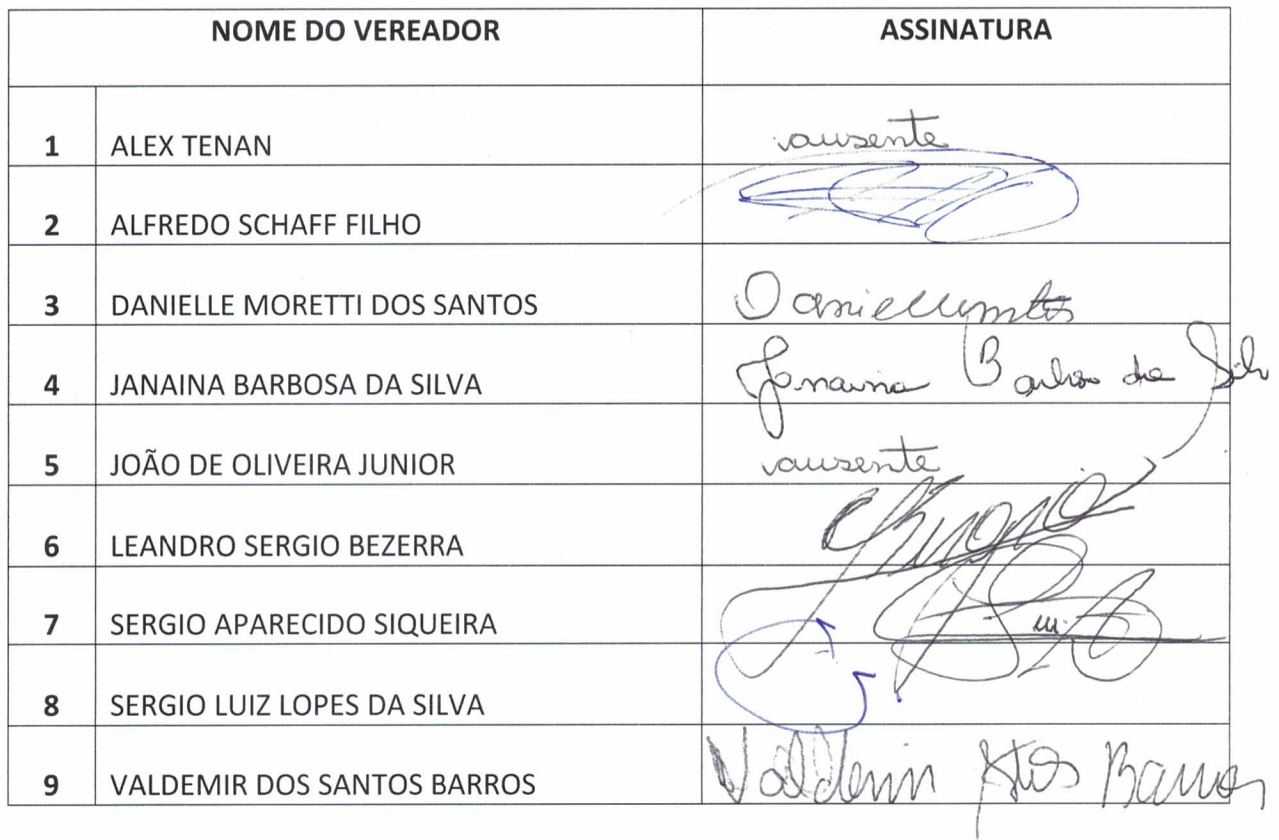 NOME DO VEREADOR ASSINATURA
1 ALEX TENAN ausente
2 ALFREDO SCHAFF FILHO
3 DANIELLE MORETTI DOS SANTOS
4 JANAINA BARBOSA DA SILVA Janaina Barbosa da Silva
5 JOÃO DE OLIVEIRA JUNIOR ausente
6 LEANDRO SERGIO BEZERRA
7 SERGIO APARECIDO SIQUEIRA
8 SERGIO LUIZ LOPES DA SILVA
9 VALDEMIR DOS SANTOS BARROS Valdemir Stos Barros